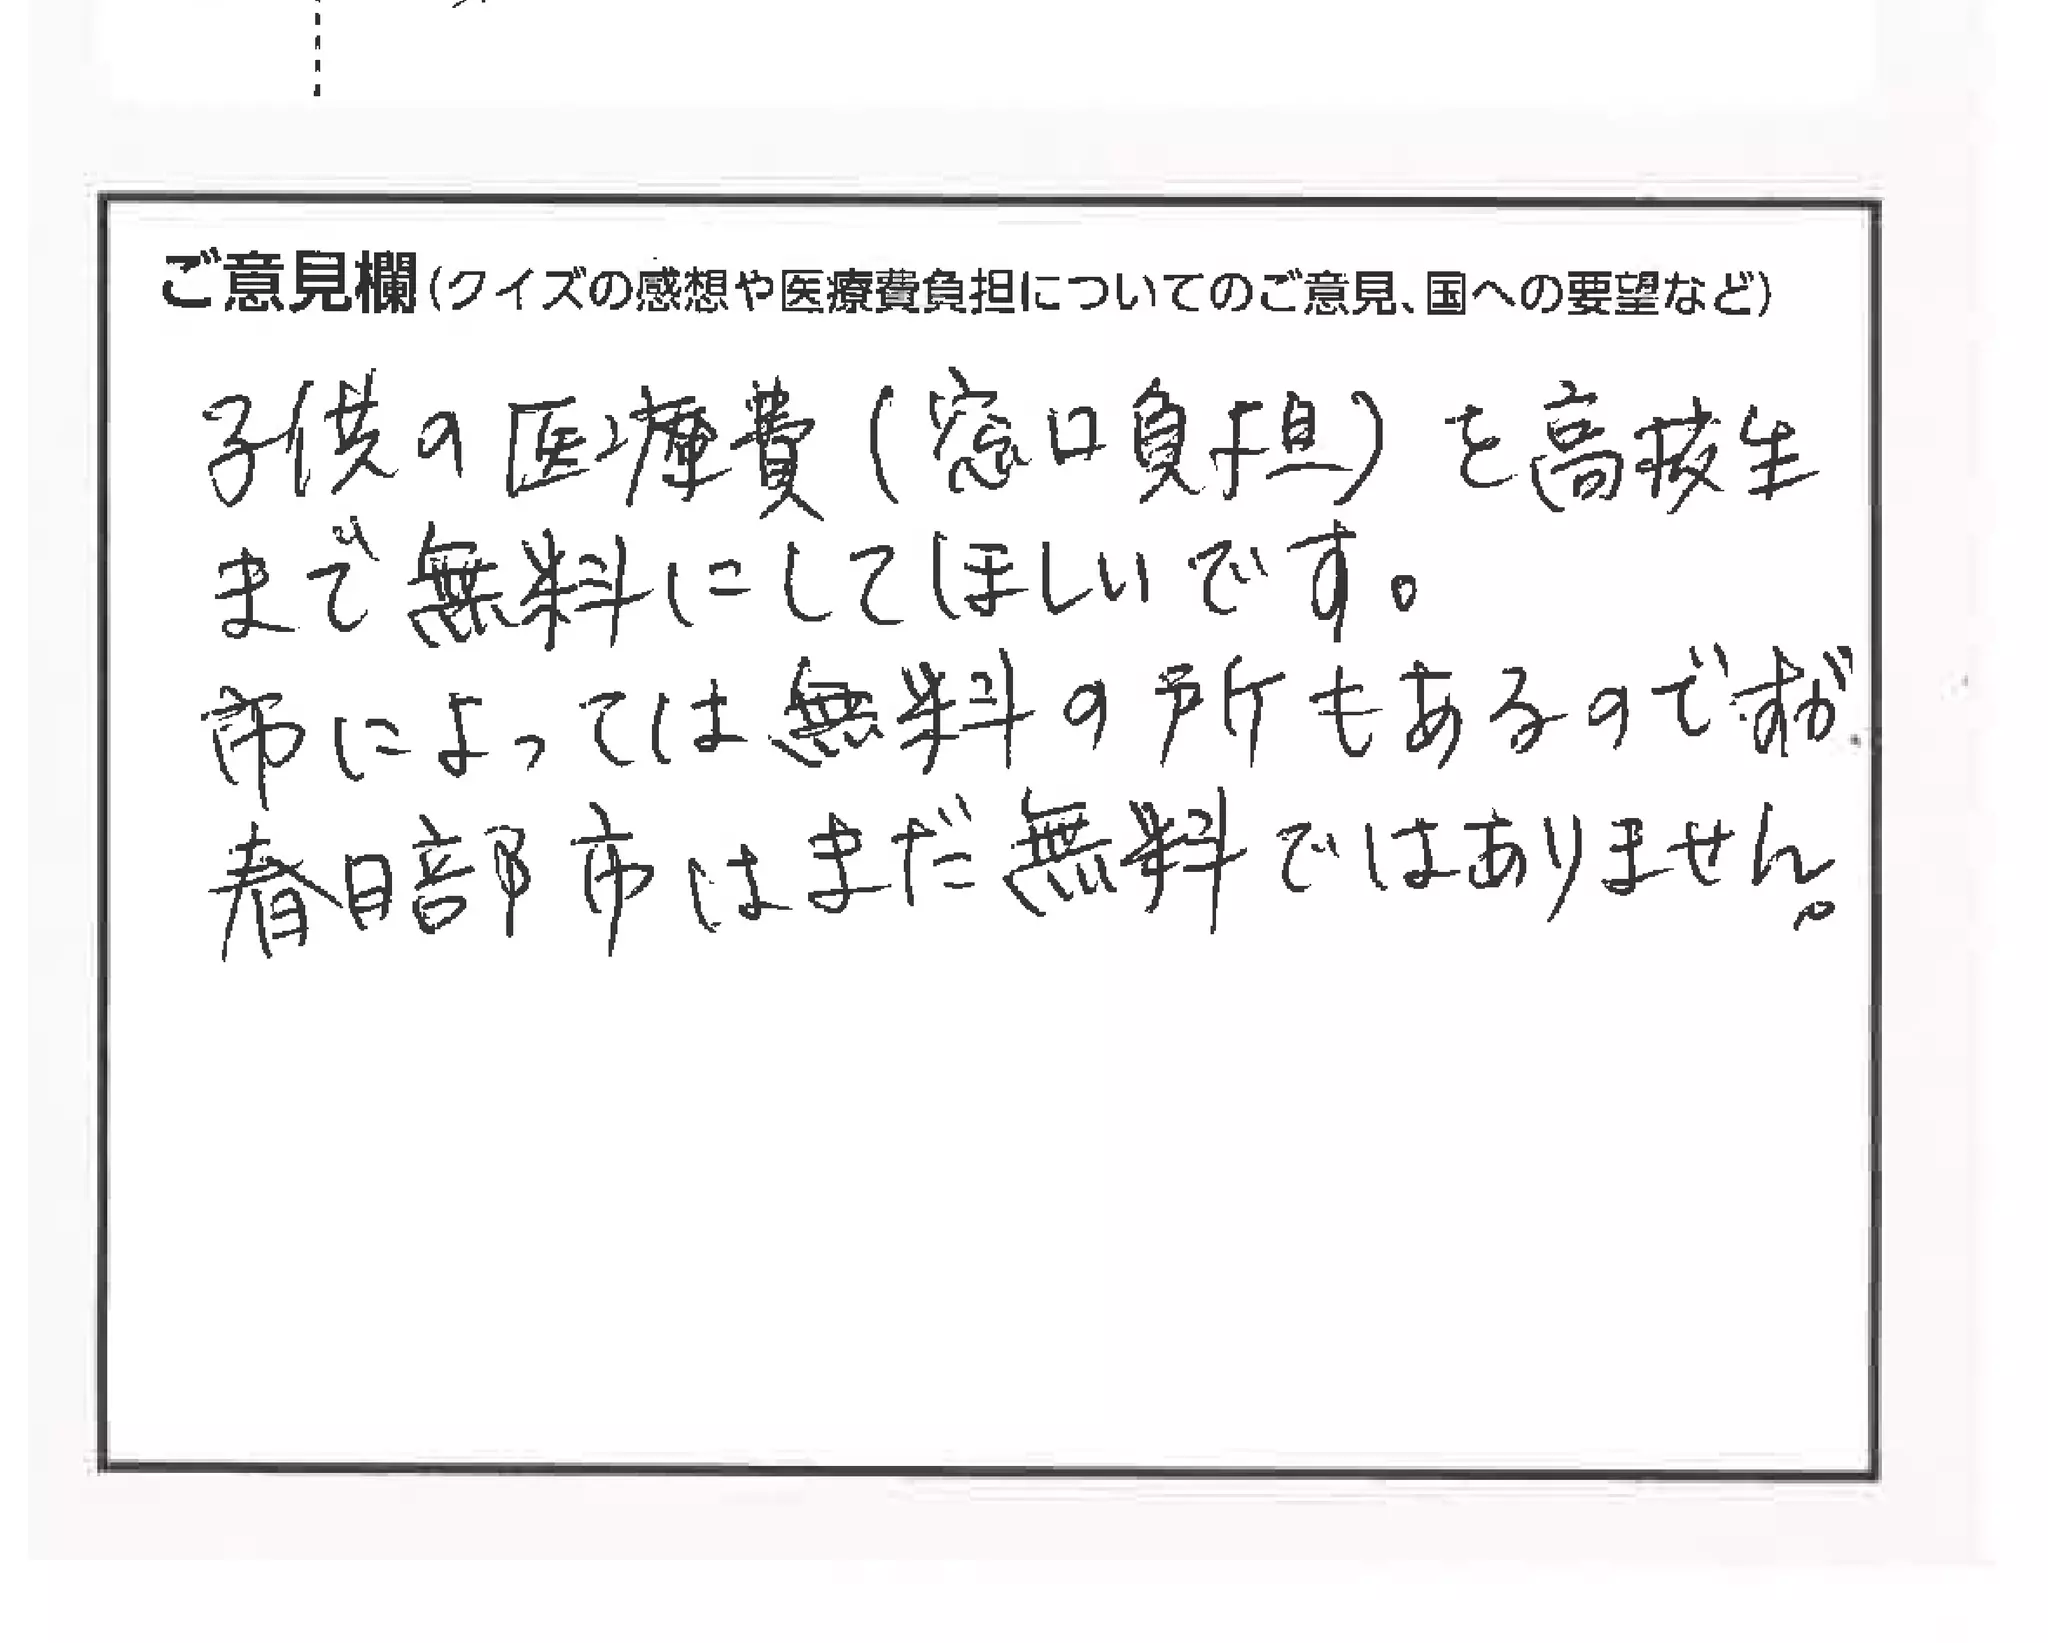 ご意見欄(クイズの感想や医療費負担についてのご意見、国への要望など)
子供の医療費(窓口負担)を高校生
まで無料にしてほしいです。
市によっては無料の所もあるのですが
春日部市はまだ無料ではありません。